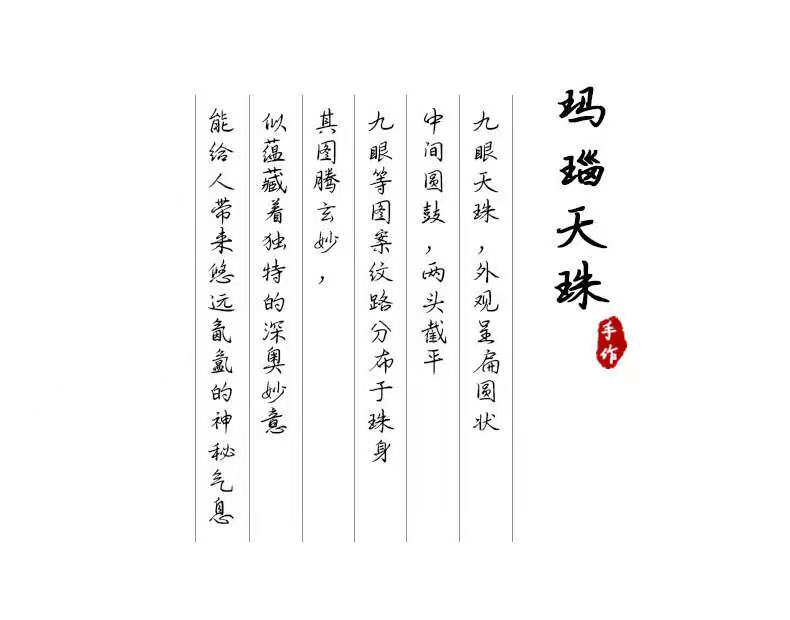 玛瑙天珠
手作
九眼天珠，外观呈扁圆状
中间圆鼓，两头截平
九眼等图案纹路分布于珠身
其图腾玄妙，
似蕴藏着独特的深奥妙意
能给人带来悠远氤氲的神秘气息